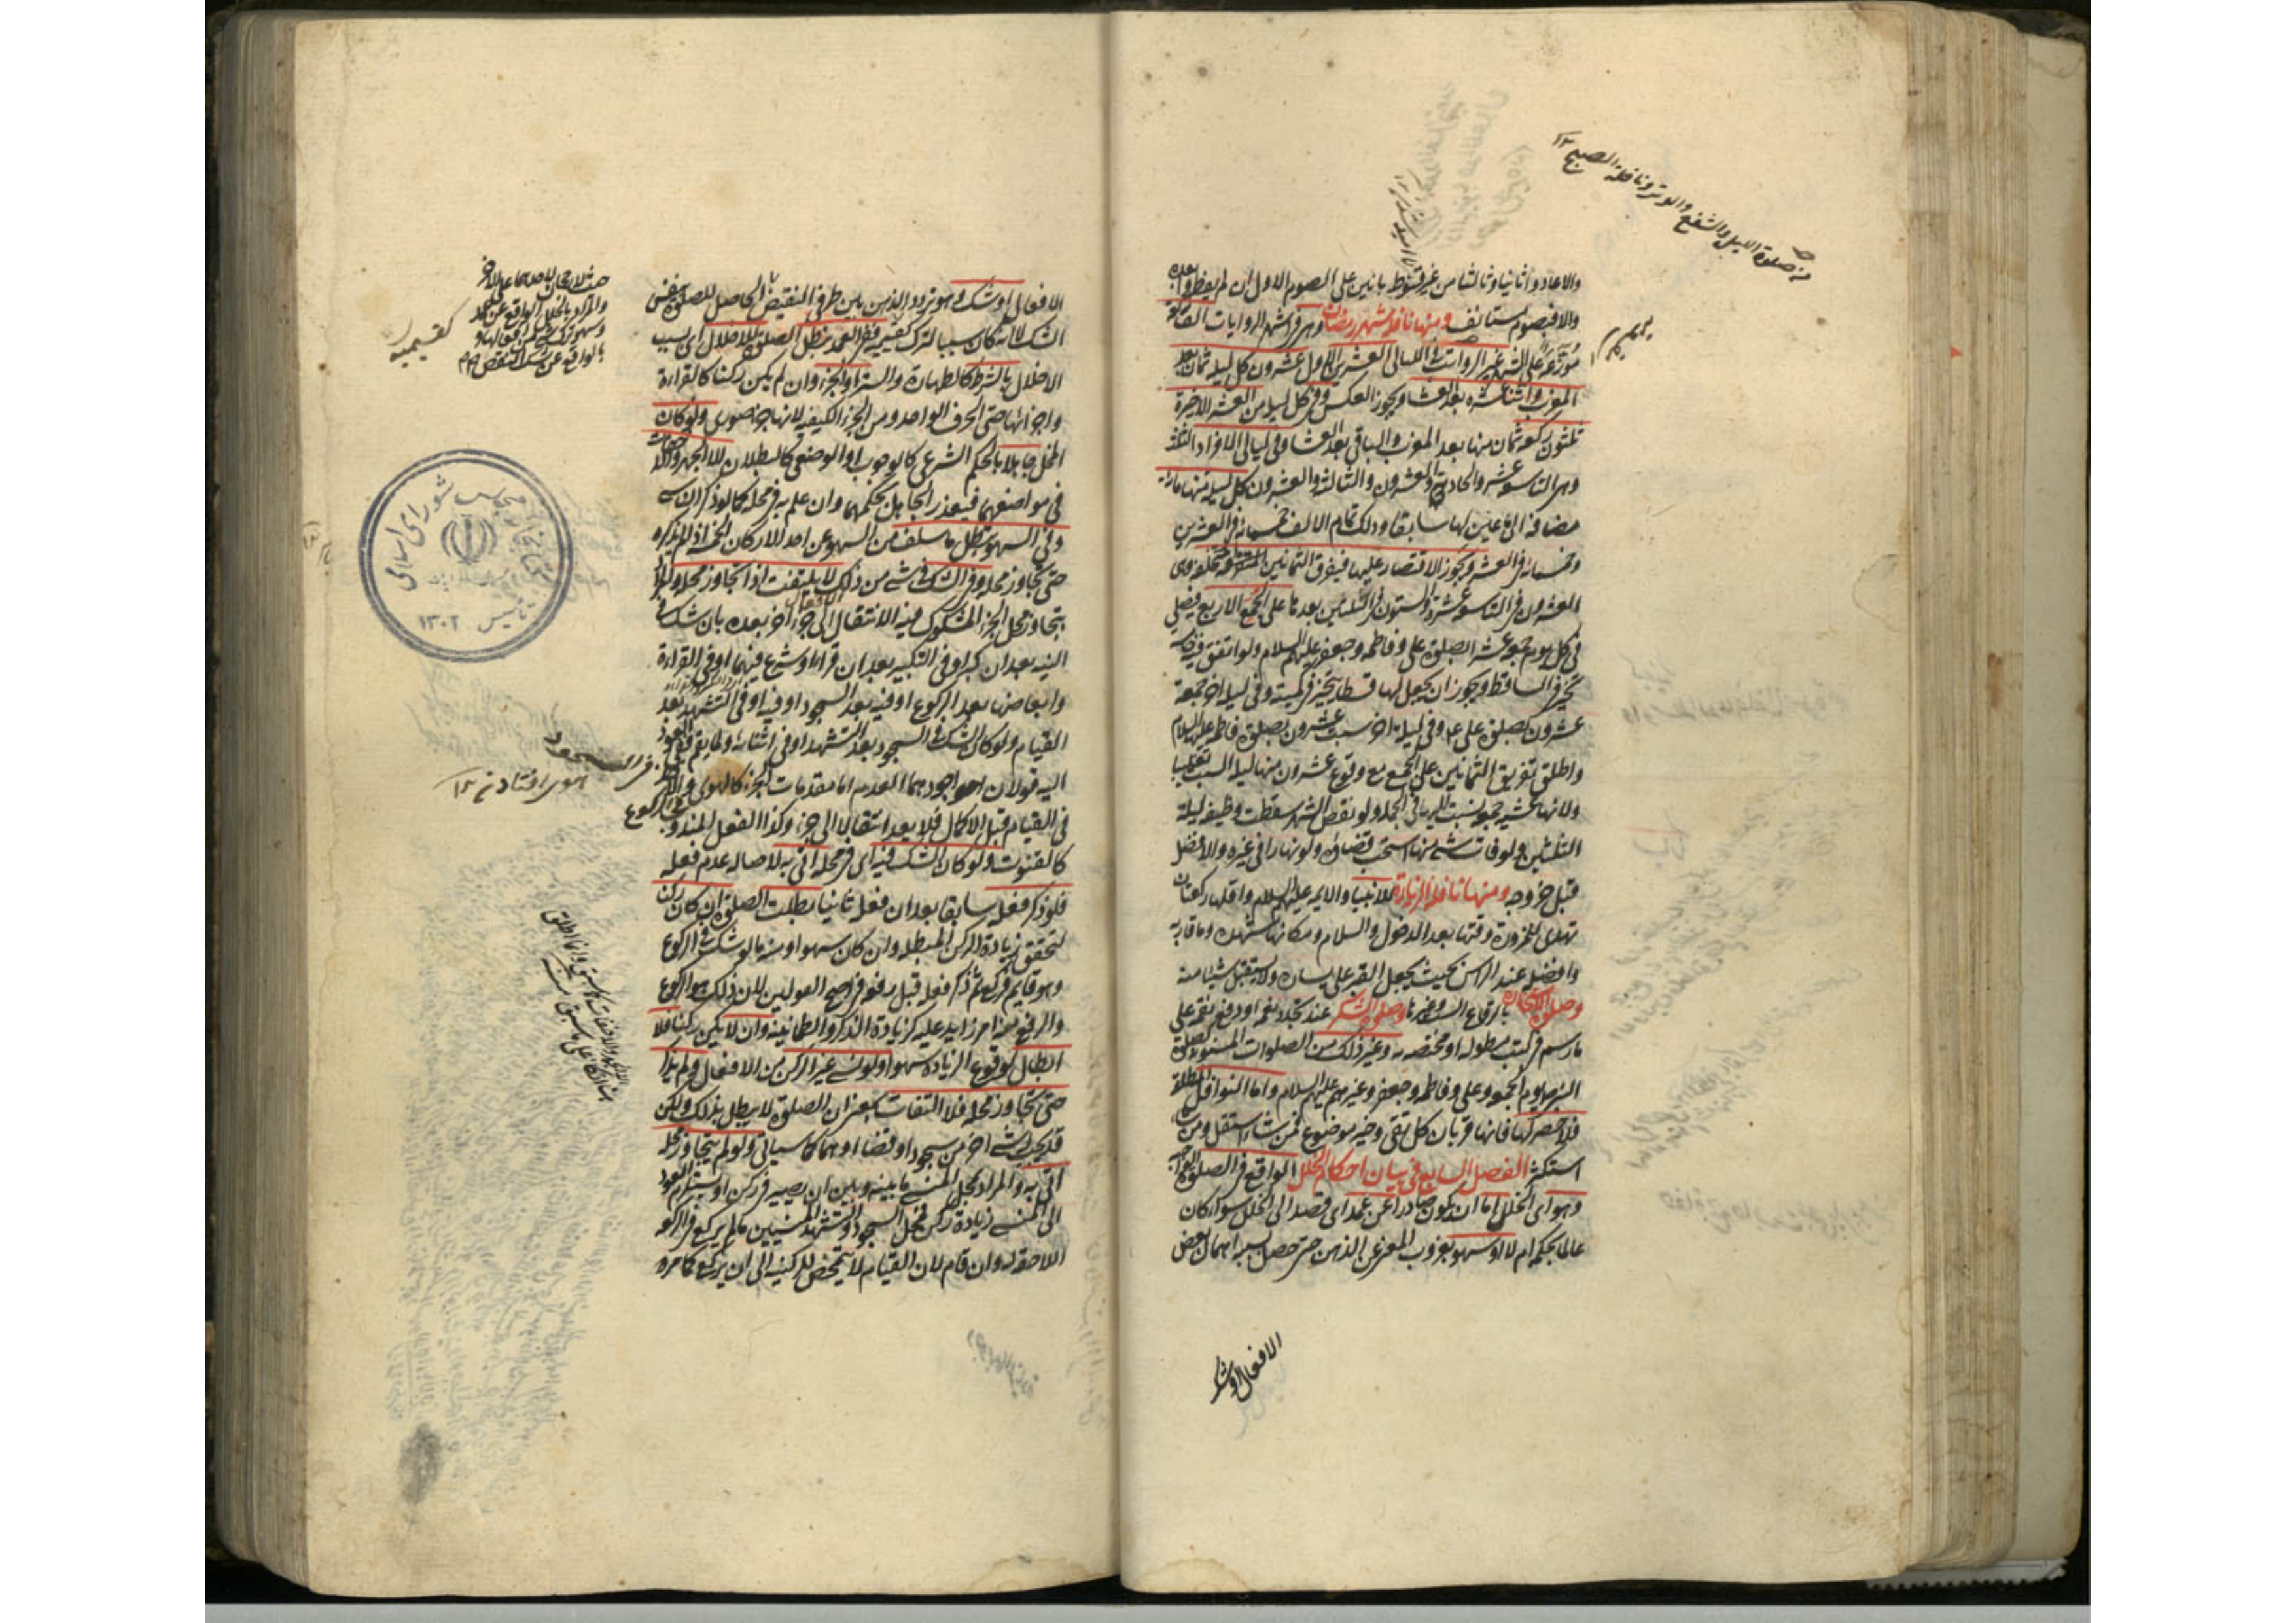 من صلوة الليل والشفع والوتر ونافلة الصبح ١٢
والا عادوا ثانيا وثالثا من غير قنوط بانين على الصوم الاول ان لم يفطروا بعده
والا فبصوم مستأنف ومنها نافلة شهر رمضان وهي في اشهر الروايات الف ركعة
موزعة على الشهر غير الرواتب في الليالي العشرين الاول عشرون كل ليلة ثمان بعد
المغرب واثنتا عشرة بعد العشاء ويجوز العكس وفي كل ليلة من العشر الاخيرة
ثلثون ركعة ثمان منها بعد المغرب والباقي بعد العشاء وفي ليالي الافراد الثلث
وهي التاسعة عشر والحادية والعشرون والثالثة والعشرون كل ليلة منها مائة
مضافة الى ما عين لها سابقا وذلك تمام الالف خمسمائة في العشرين
وخمسمائة في العشر ويجوز الاقتصار عليها فيفرق الثمانين المتخلفة وهي
العشرون في التاسعة عشرة والستون في الليلتين بعدها على الجمع الاربع فيصلي
في كل يوم جمعة عشرا بصلوة علي وفاطمة وجعفر عليهم السلام ولو اتفق فيه خامسة
تخير في الساقط ويجوز ان يجعل لها قسطا يتخير في كميته وفي ليلة اخر جمعة
عشرون بصلوة علي ع وفي ليلة اخر سبت عشرون بصلوة فاطمة عليها السلام
واطلق تفريق الثمانين على الجمع مع وقوع عشرين منها ليلة السبت تغليبا
ولانها عشية جمعة تنسب اليها في الجملة ولو نقص الشهر سقطت وظيفة ليلة
الثلثين ولو فات شيء منها استحب قضاؤه ولو نهارا وفي غيره والافضل
قبل خروجه ومنها نافلة الزيارة للانبياء والائمة عليهم السلام واقلها ركعتان
تهدى للمزور ووقتها بعد الدخول والسلام ومكانها مشهده وما قاربه
وافضله عند الراس بحيث يجعل القبر على يساره ولا يستقبل شيئا منه
وصلوة الاستخارة بالرقاع الست وغيرها وصلوة الشكر عند تجدد نعمة او دفع نقمة على
ما رسم في كتب مطولة او مختصة به وغير ذلك من الصلوات المسنونة كصلوة
النبي ص يوم الجمعة وعلي وفاطمة وجعفر وغيرهم عليهم السلام واما النوافل المطلقة
فلا حصر لها فانها قربان كل تقي وخير موضوع فمن شاء استقل ومن شاء
استكثر الفصل السابع في بيان احكام الخلل الواقع في الصلوة الواجبة
وهو اي الخلل اما ان يكون صادرا عن عمد اي قصد الى الخلل سواء كان
عالما بحكمه ام لا او سهو بعزوب المعنى عن الذهن حتى حصل بسببه اهمال بعض
الافعال او شك
الافعال او شك وهو تردد الذهن بين طرفي النقيض الحاصل للصلوة بنفس
الشك لا انه كان سببا لترك كقسيميه ففي العمد تبطل الصلوة للاخلال اي بسبب
الاخلال بالشرط كالطهارة والستر او الجزء وان لم يكن ركنا كالقراءة
واجزائها حتى الحرف الواحد ومن الجزء الكيفية لانها جزء صوري ولو كان
المخل جاهلا بالحكم الشرعي كالوجوب او الوضعي كالبطلان الا الجهر والاخفات
في مواضعهما فيعذر الجاهل بحكمهما وان علم به في محله كما لو ذكر الناسي
وفي السهو يبطل ما سلف من السهو عن احد الاركان الخمسة اذا لم يذكره
حتى تجاوز محله وفي الشك في شيء من ذلك لا يلتفت اذا تجاوز محله والمراد
بتجاوز محل الجزء المشكوك فيه الانتقال الى جزء اخر بعده بان شك في
النية بعد ان كبر او في التكبير بعد ان قرا او شرع فيهما او في القراءة
وابعاضها بعد الركوع او فيه بعد السجود او فيه او في التشهد بعد
القيام ولو كان الشك في السجود بعد التشهد او في اثنائه ولما يقم ففي العود
اليه قولان اجودهما العدم اما مقدمات الجزء كالهوي والاخذ
في القيام قبل الاكمال فلا يعد انتقالا الى جزء وكذا الفعل المندوب
كالقنوت ولو كان الشك فيه اي في محله اتى به لاصالة عدم فعله
فلو ذكر فعله سابقا بعد ان فعله ثانيا بطلت الصلوة ان كان ركنا
لتحقق زيادة الركن المبطلة وان كان سهوا ومنه ما لو شك في الركوع
وهو قايم فركع ثم ذكر فعله قبل رفعه في اصح القولين لان ذلك هو الركوع
والرفع منه امر زايد عليه كزيادة الذكر والطمانينة وان لا يكن ركنا فلا
ابطال لوقوع الزيادة سهوا ولو نسي غير الركن من الافعال ولم يذكر
حتى تجاوز محله فلا التفات بمعنى ان الصلوة لا تبطل بذلك ولكن
قد يجب له شيء اخر من سجود او قضاء او هما كما سيأتي ولو لم يتجاوز محله
اتى به والمراد بمحل المنسي ما بينه وبين ان يصير في ركن او يستلزم العود
الى المنسي زيادة ركن فمحل السجود والتشهد المنسيين ما لم يركع في الركعة
اللاحقة له وان قام لان القيام لا يتمحض للركنية الى ان يركع كما مر
كقسيميه
مجلس شورای اسلامی
تأسیس ١٣٠٢